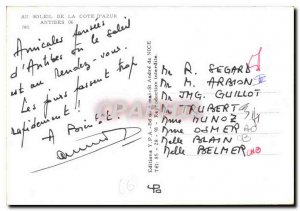 AU SOLEIL DE LA COTE D'AZUR
ANTIBES 06
Amicales pensées
d'Antibes où le soleil
est au Rendez-vous.
Les jours passent trop
rapidement !!
A Bientôt.
Editions Y.P.A.
St André de NICE
Reproduction interdite
Mr R. SEGARD
Mr M. ARBION
Mr JMG. GUILLOT
Mr RUBERT
Mme MUNOZ
Mme OSMER
Melle BLAIN
Melle BELMER